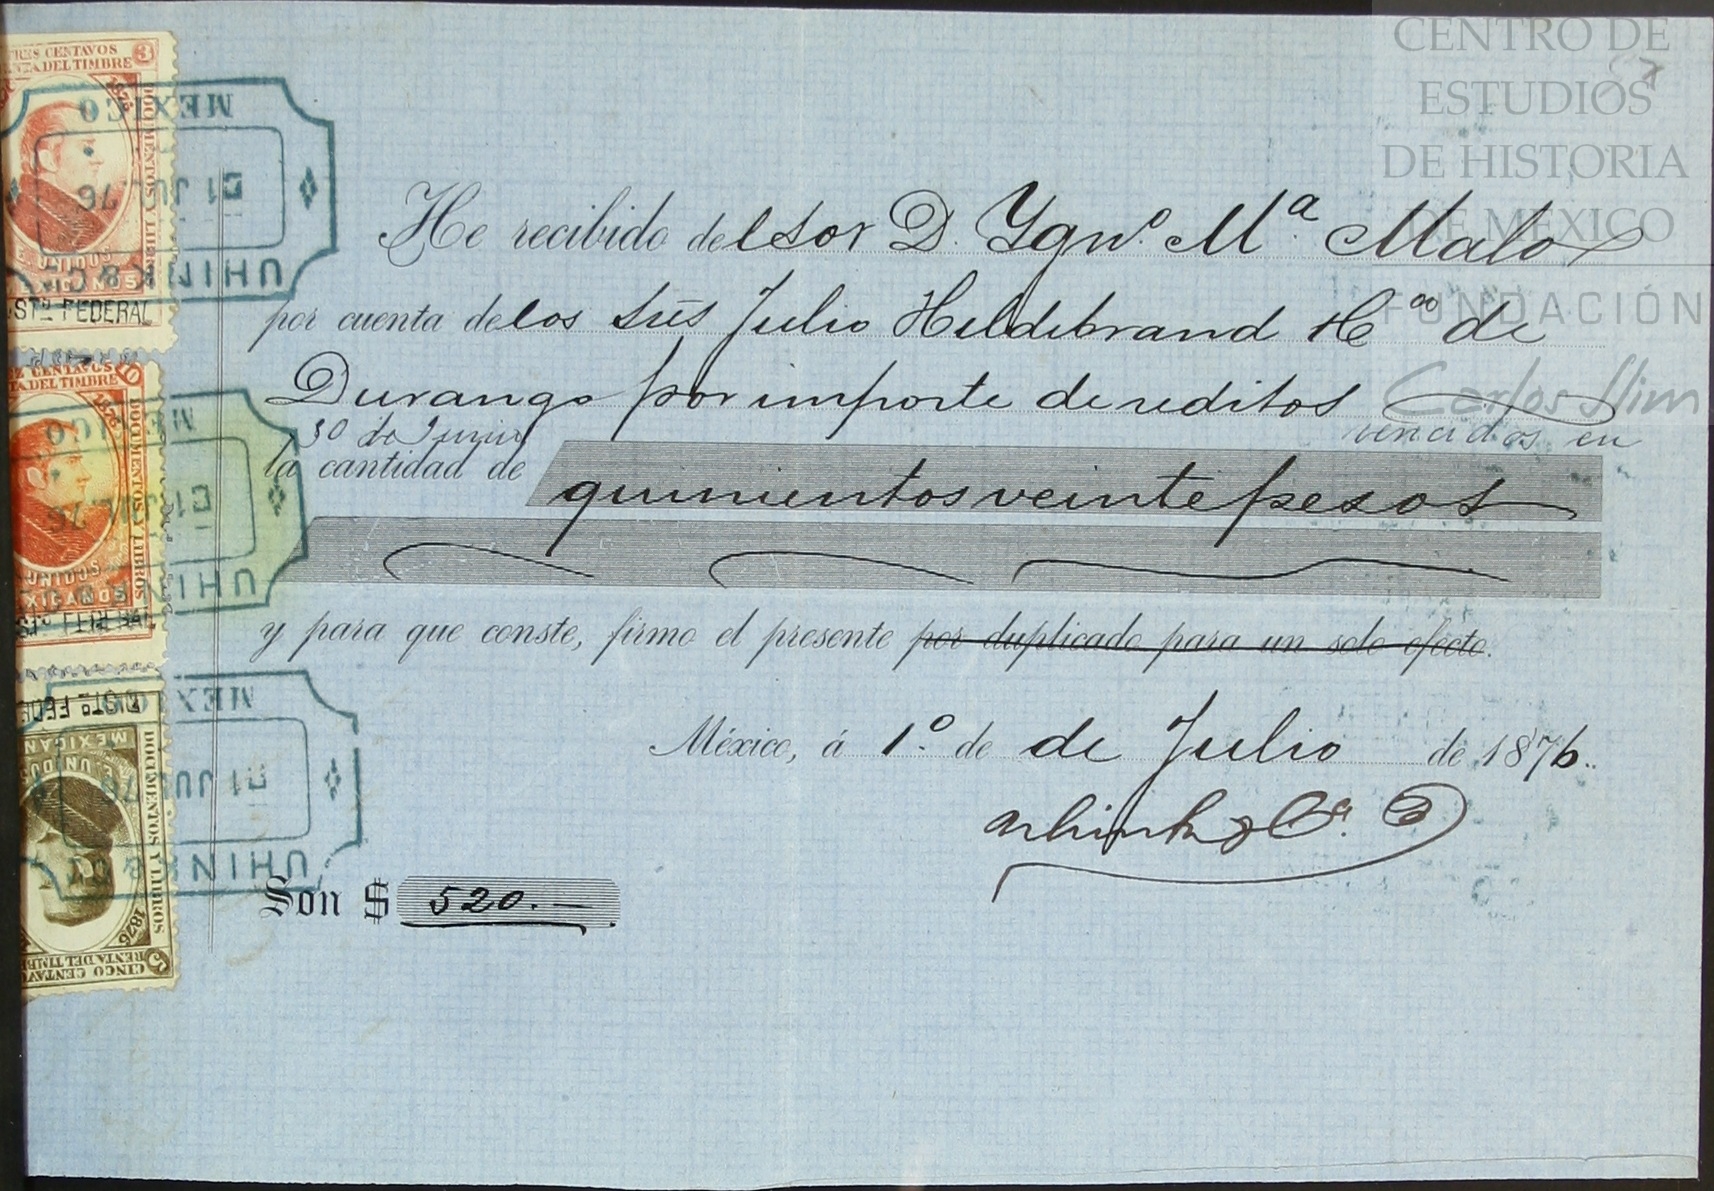 CENTRO DE
ESTUDIOS
DE HISTORIA
DE MÉXICO
FUNDACIÓN
Carlos Slim
TRES CENTAVOS 3
RENTA DEL TIMBRE
DOCUMENTOS Y LIBROS
1876
E. UNIDOS
MEXICANOS
STO FEDERAL
MEXICO
01 JUL 76
UHINK & Co
10
DEL TIMBRE
1876
DOCUMENTOS Y LIBROS
UNIDOS
MEXICANOS
MEXICO
01 JUL 76
UHINK
DISTO FEDE
MEXICAN
E. UNIDOS
DOCUMENTOS Y LIBROS
1876
RENTA DEL TIMBRE
CINCO CENTAVOS 5
MEXICO
01 JUL 76
UHINK & Co
He recibido del Sor D. Ygno. Ma. Malo
por cuenta de los Sres Julio Hildebrand Hos de
Durango por importe de reditos
vencidos en
30 de Junio
la cantidad de quinientos veinte pesos
y para que conste, firmo el presente por duplicado para un solo efecto.
México, á 1o. de de Julio de 1876.
Uhink y Ca.
Son $ 520.—